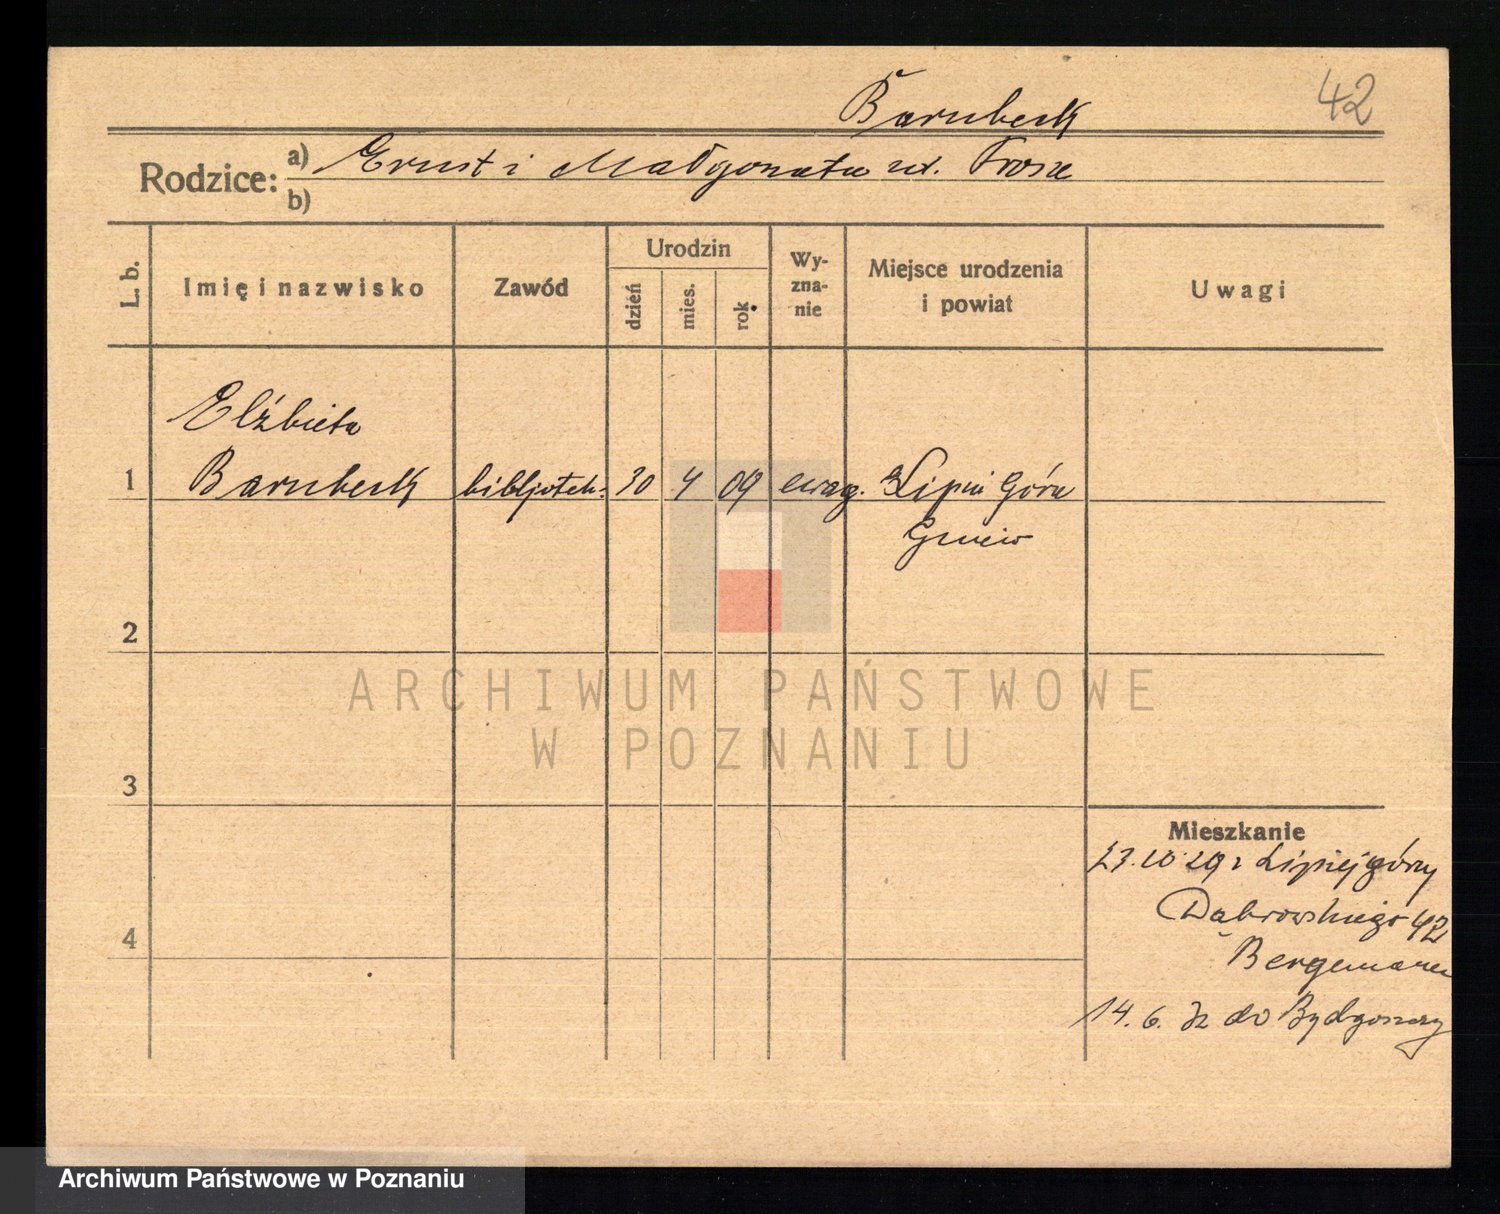 Barnbeck
42
Rodzice: a) Ernst i Małgorzata zd. Frose
b)
L. b. Imię i nazwisko Zawód Urodzin dzień mies. rok Wy-zna-nie Miejsce urodzenia i powiat Uwagi
Elżbieta
1 Barnbeck bibljotek. 30 4 09 ewag. Lipia Góra
Gniew
2
ARCHIWUM PAŃSTWOWE
W POZNANIU
3
Mieszkanie
23.10.29 z Lipiejgóry
Dąbrowskiego 42
4
Bergemann
14.6.32 do Bydgoszczy
Archiwum Państwowe w Poznaniu